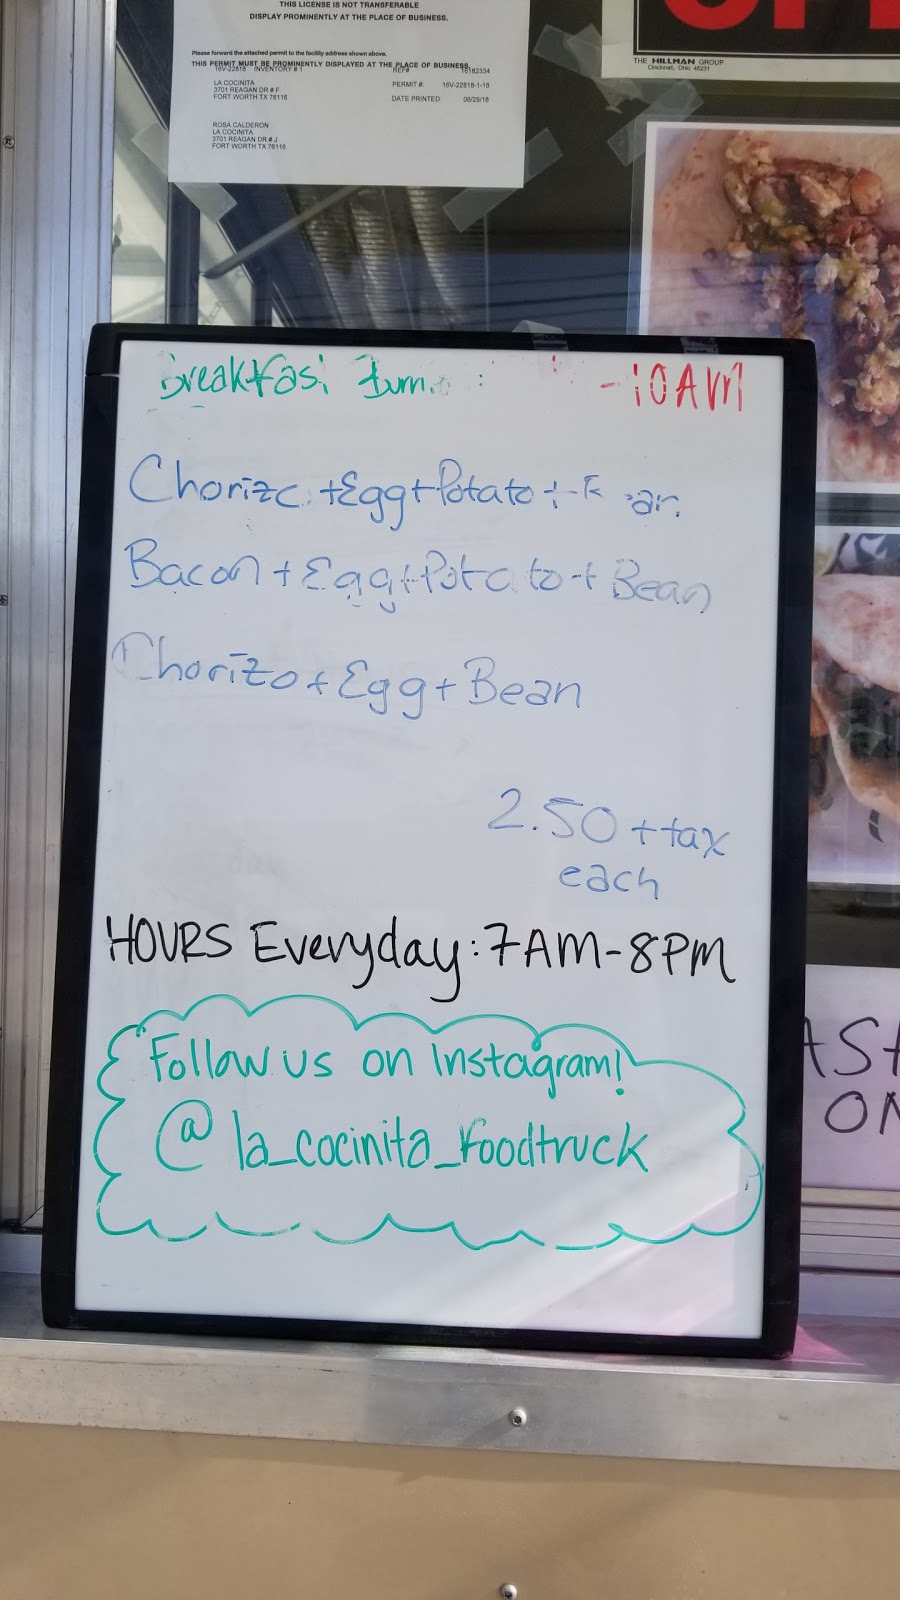 THIS LICENSE IS NOT TRANSFERABLE
DISPLAY PROMINENTLY AT THE PLACE OF BUSINESS.
Please forward the attached permit to the facility address shown above.
THIS PERMIT MUST BE PROMINENTLY DISPLAYED AT THE PLACE OF BUSINESS.
16V-22818 INVENTORY # 1
REF# 16182334
LA COCINITA
3701 REAGAN DR # F
FORT WORTH TX 76116
PERMIT #: 16V-22818-1-18
DATE PRINTED: 06/29/18
ROSA CALDERON
LA COCINITA
3701 REAGAN DR # J
FORT WORTH TX 76116
THE HILLMAN GROUP
Cincinnati, Ohio 45231
Breakfast - 10AM
Chorizo + Egg + Potato +
Bacon + Egg + Potato + Bean
Chorizo + Egg + Bean
2.50 + tax
each
HOURS Everyday: 7AM-8PM
Follow us on Instagram!
@la_cocinita_foodtruck